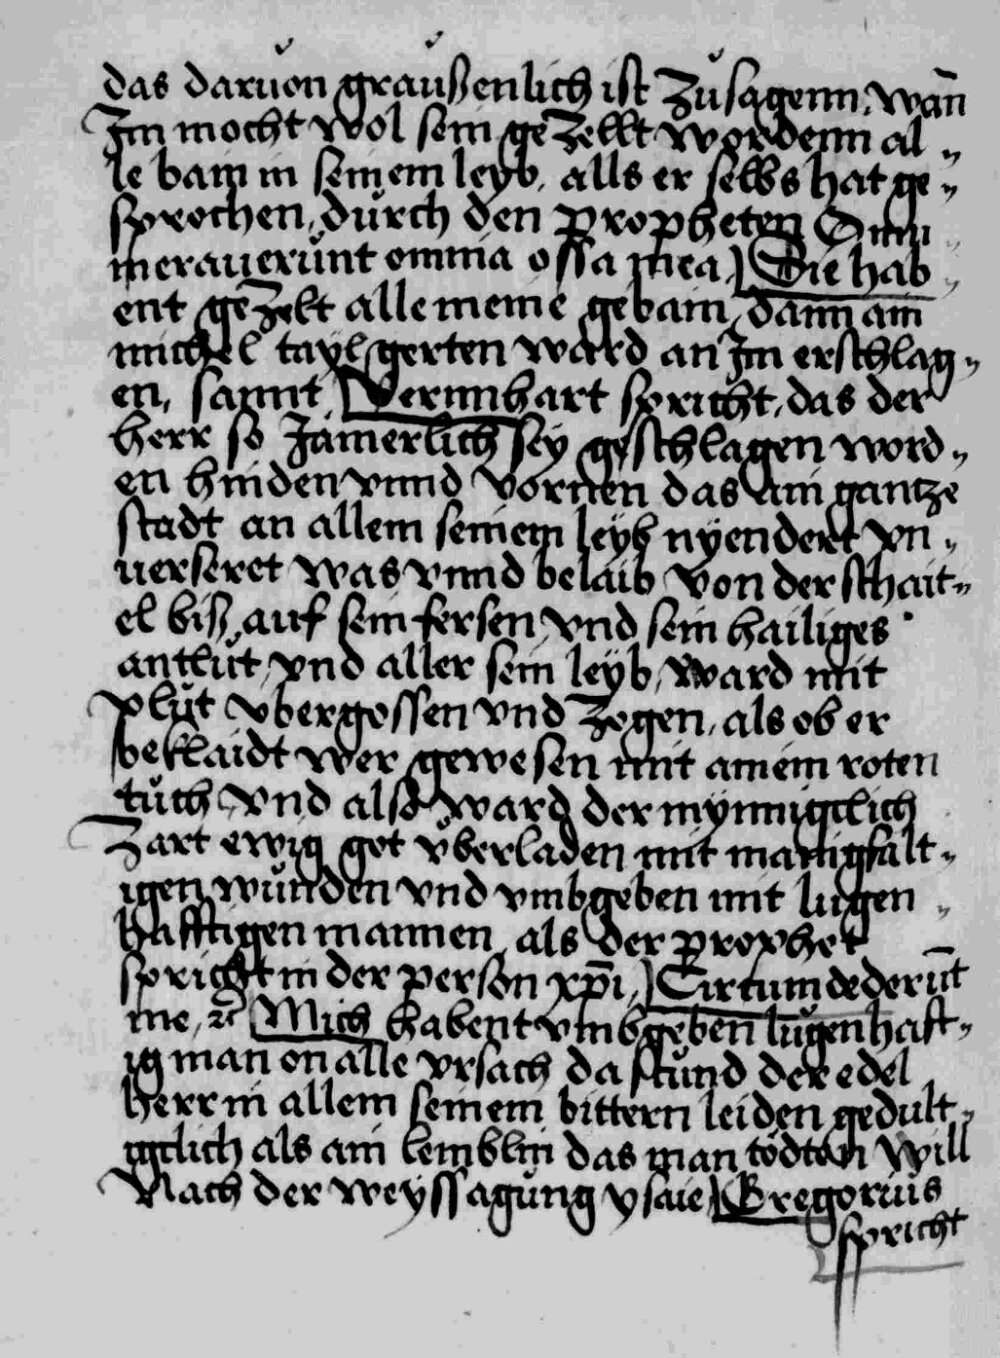 das daruon graussenlich ist zu sagenn, wan̄
Im mocht wol sein gezellt wordenn al„
le bain in seinem leyb, alls er selbs hat ge„
sprochen, durch den propheten Dinu„
merauerunt omnia ossa mea) Die hab„
ent gezelt alle meine gebain, dann ain
michel tayl gerten ward an Im erschlag„
en, sannt Bernnhart spricht, das der
herr so Jamerlich sey geschlagen word„
en hinden vnnd vornen das ain gantze
stadt an allem seinem leyb nyendert vn„
uerseret was vnnd belaib von der schait„
el biß auf sein fersen vnd sein hailiges
antlut vnd aller sein leyb, ward mit
plut vbergossen vnd zogen, als ob er
beklaidt wer gewesen mit ainem roten
tuch vnd also ward der mynnigclich
zart ewig got vberladen mit manigfalt„
igen wunden vnd vmbgeben mit lugen„
hafftigen mannen als der prophet
spricht in der person xp̄i,) Circumdederūt
me, ꝛc̄ Mich habent vmbgeben lugenhaft„
ig man on alle vrsach da stund der edel
herr in allem seinem bittern leiden gedult„
igclich als ain lemblin das man tödten will
Nach der weyssagung ysaie) Gregorius
spricht